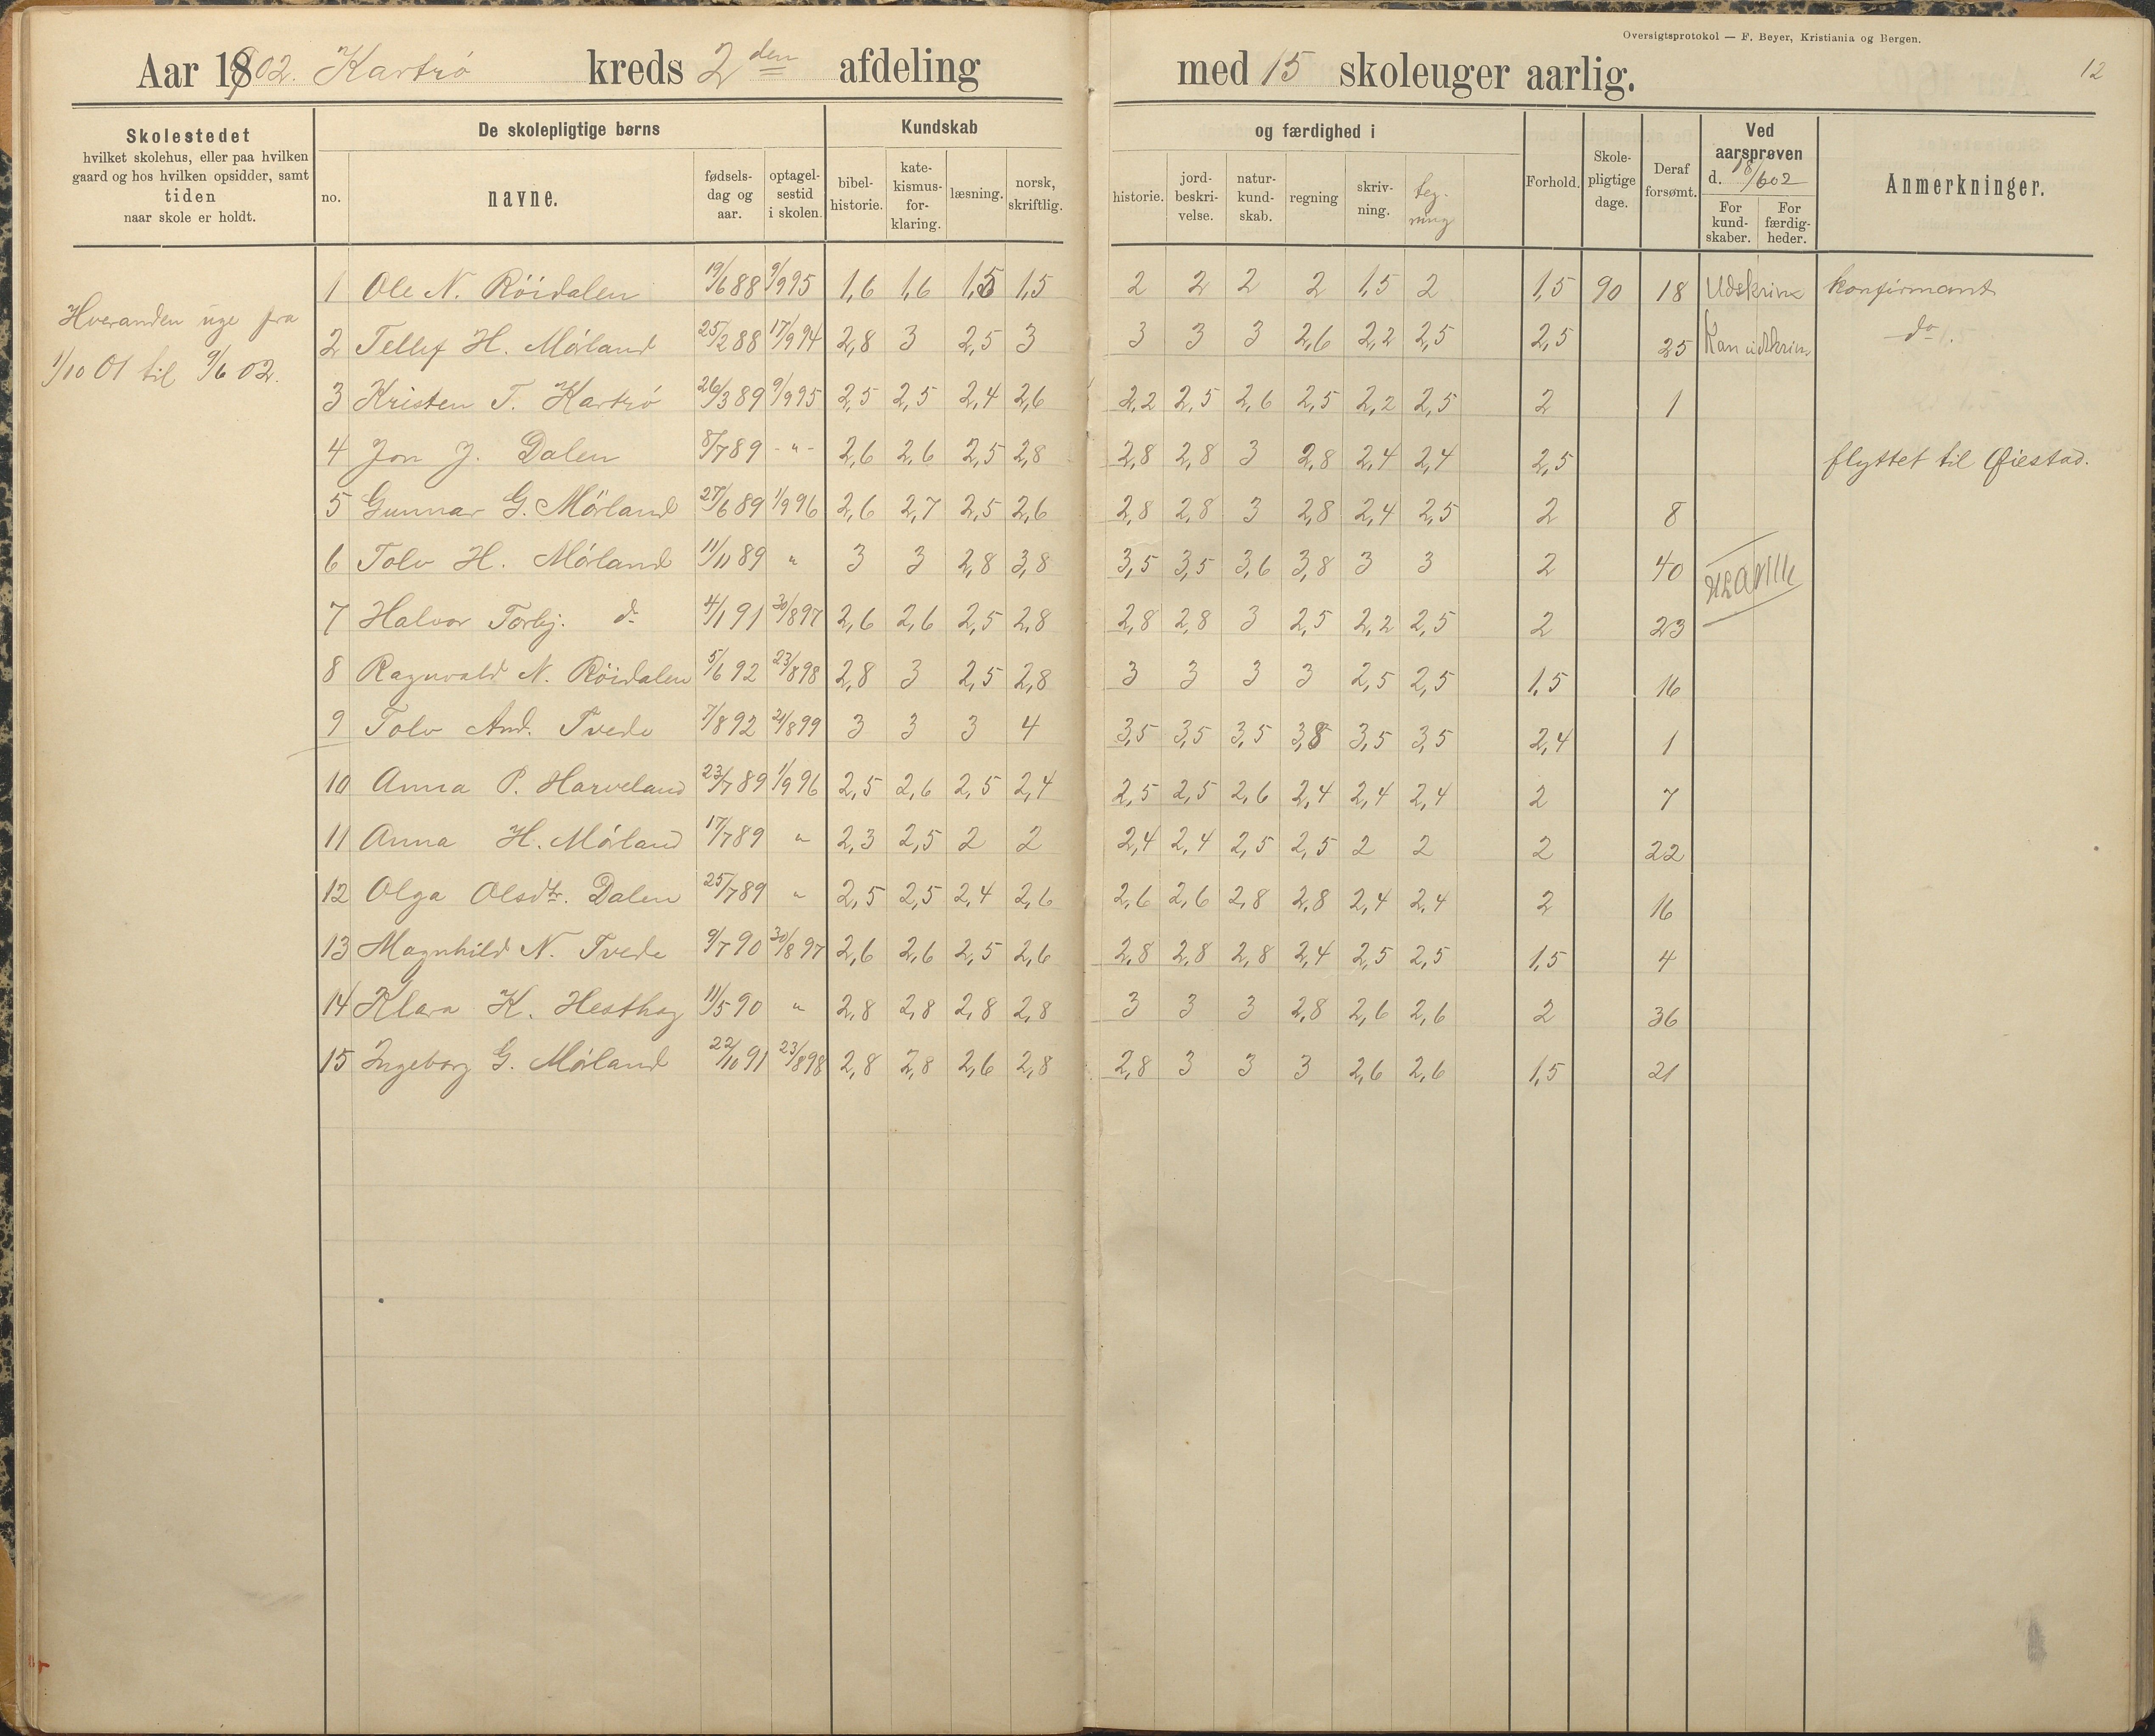 Oversigtsprotokol — F. Beyer, Kristiania og Bergen.
Aar 1902. Kartrø kreds 2den afdeling med 15 skoleuger aarlig. 12
Skolestedet
hvilket skolehus, eller paa hvilken
gaard og hos hvilken opsidder, samt
tiden
naar skole er holdt.
De skolepligtige børns
no. navne. fødsels-dag og aar. optagel-sestid i skolen.
Kundskab og færdighed i
bibel-historie. kate-kismus-for-klaring. læsning. norsk, skriftlig. historie. jord-beskri-velse. natur-kund-skab. regning skriv-ning. teg-ning
Forhold. Skole-pligtige dage. Deraf forsømt.
Ved aarsprøven d. 18/6 02
For kund-skaber. For færdig-heder.
Anmerkninger.
Hveranden uge fra
1/10 01 til 9/6 02.
1 Ole N. Röidalen 19/6 88 9/9 95 1,6 1,6 1,5 1,5 2 2 2 2 1,5 2 1,5 90 18 Udskrive konfirmant
2 Tellef H. Mörland 25/2 88 17/9 94 2,8 3 2,5 3 3 3 3 2,6 2,2 2,5 2,5 25 Kan udskrives do.
3 Kristen T. Kartrö 26/3 89 9/9 95 2,5 2,5 2,4 2,6 2,2 2,5 2,6 2,5 2,2 2,5 2 1
4 Jon J. Dalen 8/7 89 - " - 2,6 2,6 2,5 2,8 2,8 2,8 3 2,8 2,4 2,4 2,5 flyttet til Øiestad.
5 Gunnar G. Mörland 27/6 89 1/9 96 2,6 2,7 2,5 2,6 2,8 2,8 3 2,8 2,4 2,5 2 8
6 Tolv H. Mörland 11/11 89 " 3 3 2,8 3,8 3,5 3,5 3,6 3,8 3 3 2 40
7 Halvor Torbj. do 4/1 91 30/8 97 2,6 2,6 2,5 2,8 2,8 2,8 3 2,5 2,2 2,5 2 23
8 Ragnvald N. Röidalen 5/6 92 23/8 98 2,8 3 2,5 2,8 3 3 3 3 2,5 2,5 1,5 16
9 Tolv And. Tvede 7/8 92 21/8 99 3 3 3 4 3,5 3,5 3,5 3,8 3,5 3,5 2,4 1
10 Anna P. Harveland 23/7 89 1/9 96 2,5 2,6 2,5 2,4 2,5 2,5 2,6 2,4 2,4 2,4 2 7
11 Anna H. Mörland 17/7 89 " 2,3 2,5 2 2 2,4 2,4 2,5 2,5 2 2 2 22
12 Olga Olsdtr. Dalen 25/7 89 " 2,5 2,5 2,4 2,6 2,6 2,6 2,8 2,8 2,4 2,4 2 16
13 Magnhild N. Tvede 9/7 90 30/8 97 2,6 2,6 2,5 2,6 2,8 2,8 2,8 2,4 2,5 2,5 1,5 4
14 Klara K. Hesthag 11/5 90 " 2,8 2,8 2,8 2,8 3 3 3 2,8 2,6 2,6 2 36
15 Ingeborg G. Mörland 22/10 91 23/8 98 2,8 2,8 2,6 2,8 2,8 3 3 3 2,6 2,6 1,5 21